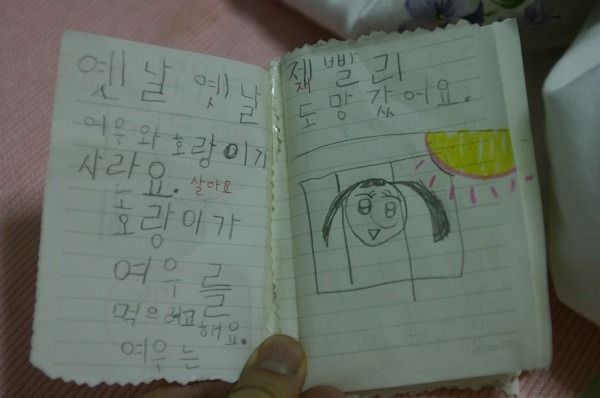 옛날 옛날
여우와 호랑이가
사란요. 살아요.
호랑이가
여우를
먹으려고해요.
여우는
잽빨리
도망갔어요.